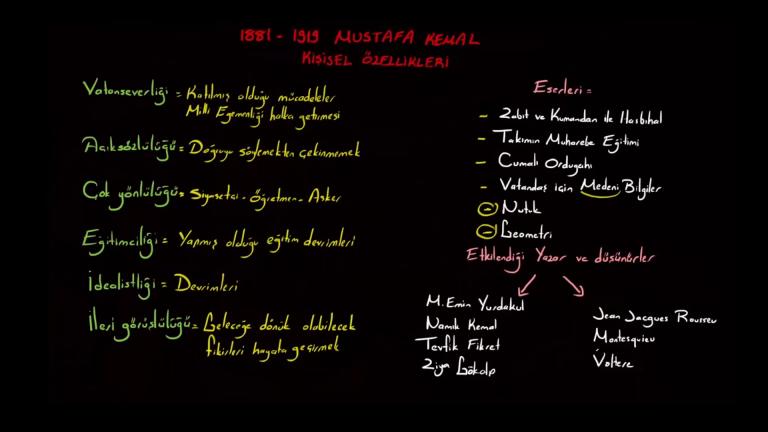 1881 - 1919 MUSTAFA KEMAL
KİŞİSEL ÖZELLİKLERİ
Vatanseverliği = Katılmış olduğu mücadeleler
Milli Egemenliği halka getirmesi
Açıksözlülüğü = Doğruyu söylemekten çekinmemek
Çok yönlülüğü = Siyasetçi - Öğretmen - Asker
Eğitimciliği = Yapmış olduğu eğitim devrimleri
İdealistliği = Devrimleri
İleri görüşlülüğü = Geleceğe dönük olabilecek
fikirleri hayata geçirmek
Eserleri =
- Zabit ve Kumandan ile Hasbihal
- Takımın Muharebe Eğitimi
- Cumalı Ordugahı
- Vatandaş için Medeni Bilgiler
- Nutuk
- Geometri
Etkilendiği Yazar ve düşünürler
M. Emin Yurdakul
Namık Kemal
Tevfik Fikret
Ziya Gökalp
Jean Jacques Rousseu
Montesquieu
Voltere